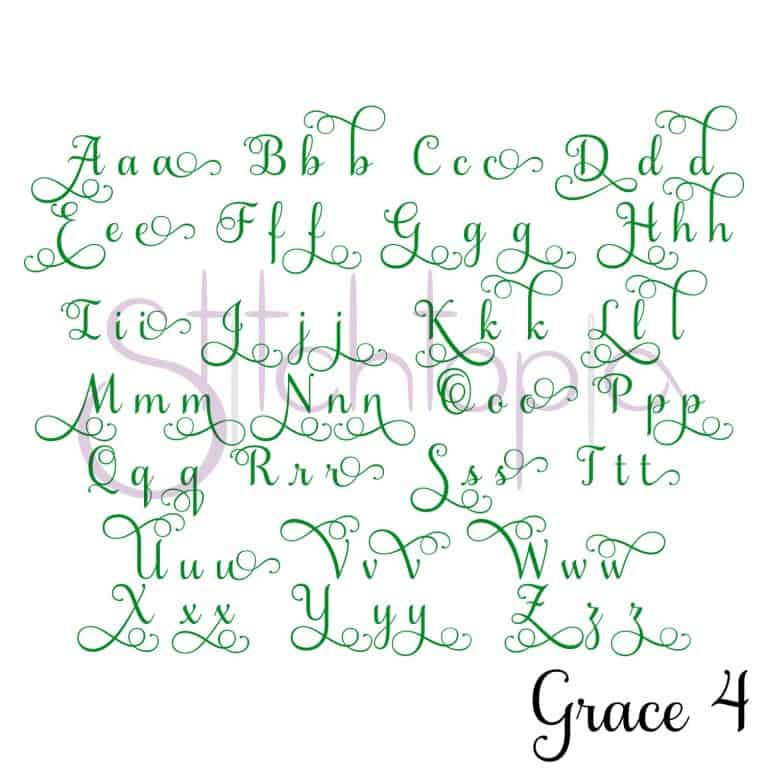 A a a B b b C c c D d d
E e e F f f G g g H h h
I i i J j j K k k L l l
Stitchtopia
M m m N n n O o o P p p
Q q q R r r S s s T t t
U u u V v v W w w
X x x Y y y Z z z
Grace 4